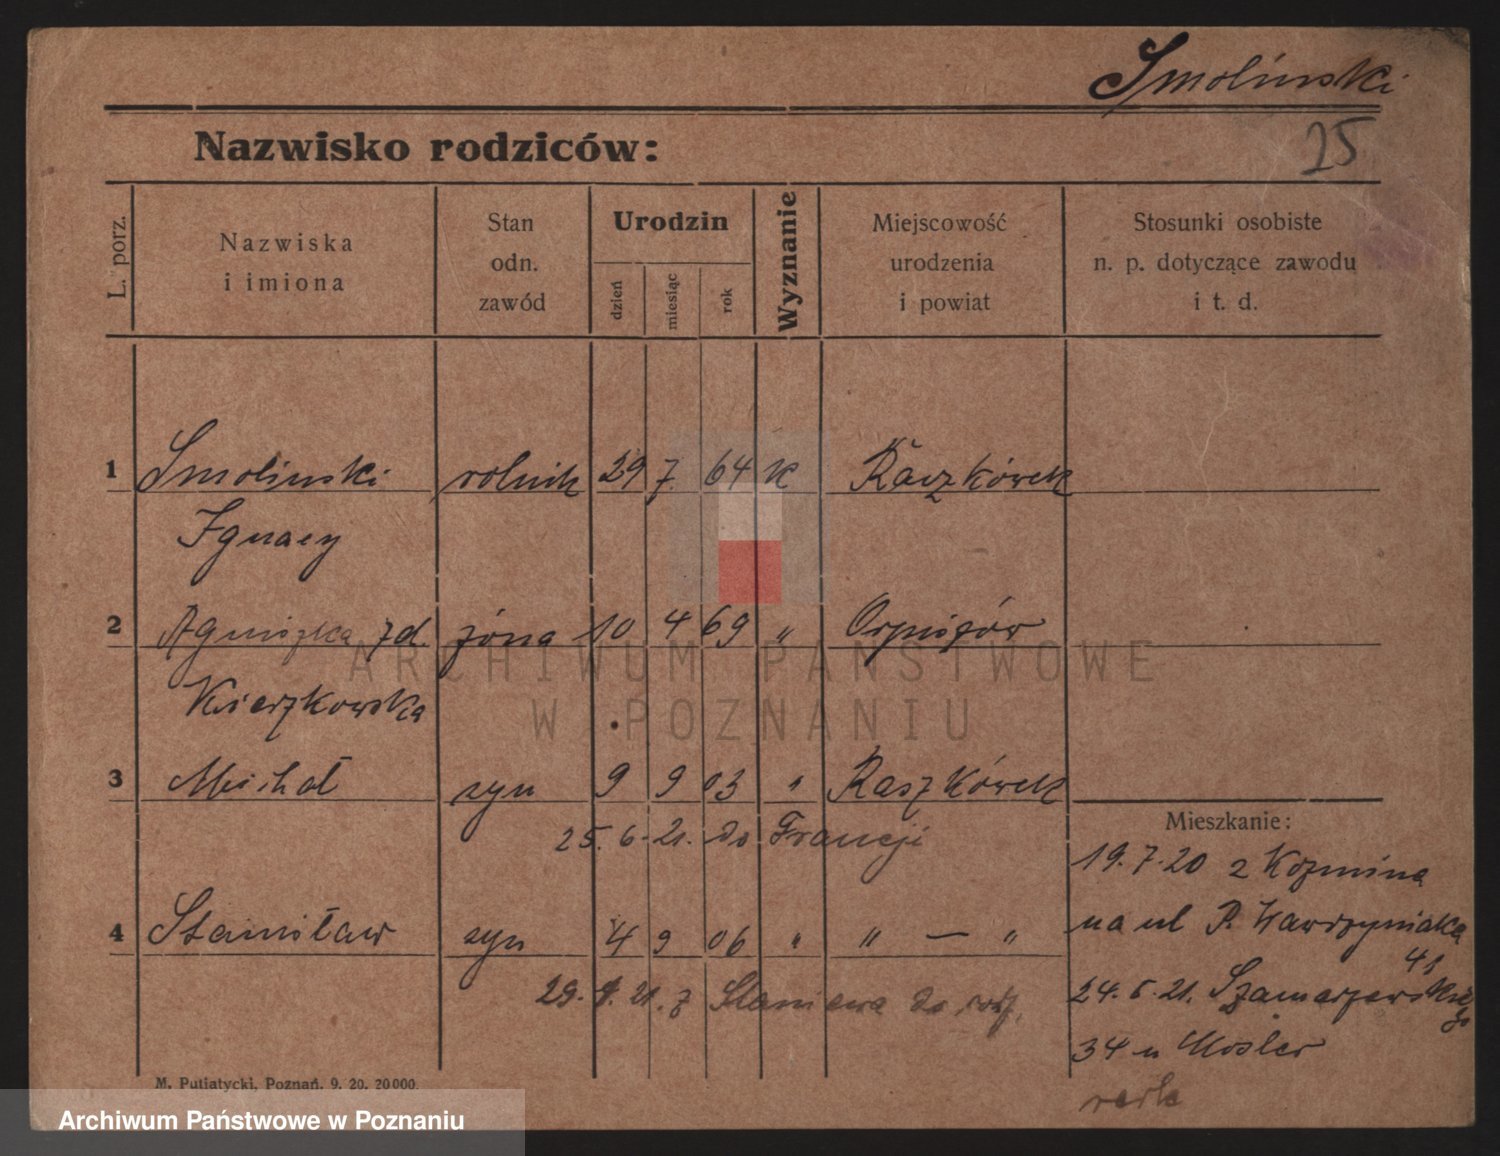 Smolinski
Nazwisko rodziców:
25
L. porz.
Nazwiska
i imiona
Stan
odn.
zawód
Urodzin
dzień
miesiąc
rok
Wyznanie
Miejscowość
urodzenia
i powiat
Stosunki osobiste
n. p. dotyczące zawodu
i t. d.
1 Smolinski rolnik 29 7. 64 k Raszkówek
Ignacy
2 Agniszka zd. żona 10 4 69 " Orpiszów
Kierzkowska
3 Michał syn 9 9 03 " Raszkówek
25. 6. 21. do Francji
Mieszkanie:
19.7.20 z Kozmina
na ul P. Wawrzyniaka
41
4 Stanisław syn 4 9 06 " " — "
24.5.21. Szamarzewskie
go
34 u Mosler
M. Putiatycki, Poznań. 9. 20. 20000.
ARCHIWUM PAŃSTWOWE
W POZNANIU
Archiwum Państwowe w Poznaniu